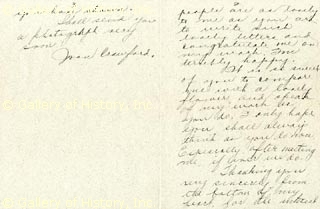 people are as lovely
to me as you are
to write such
lovely letters and
congratulate me on
my work. I'm
terribly happy.
It is so sweet
of you to compare
me with a lovely
flower and speak
of my work as
you do. I only hope
you shall always
think as you do now
Especially after meeting
me if ever we do.
Thanking you
very sincerely from
the bottom of my
heart, for the interest
you have shown.
Shall send you
a photograph very
soon.
Joan Crawford.